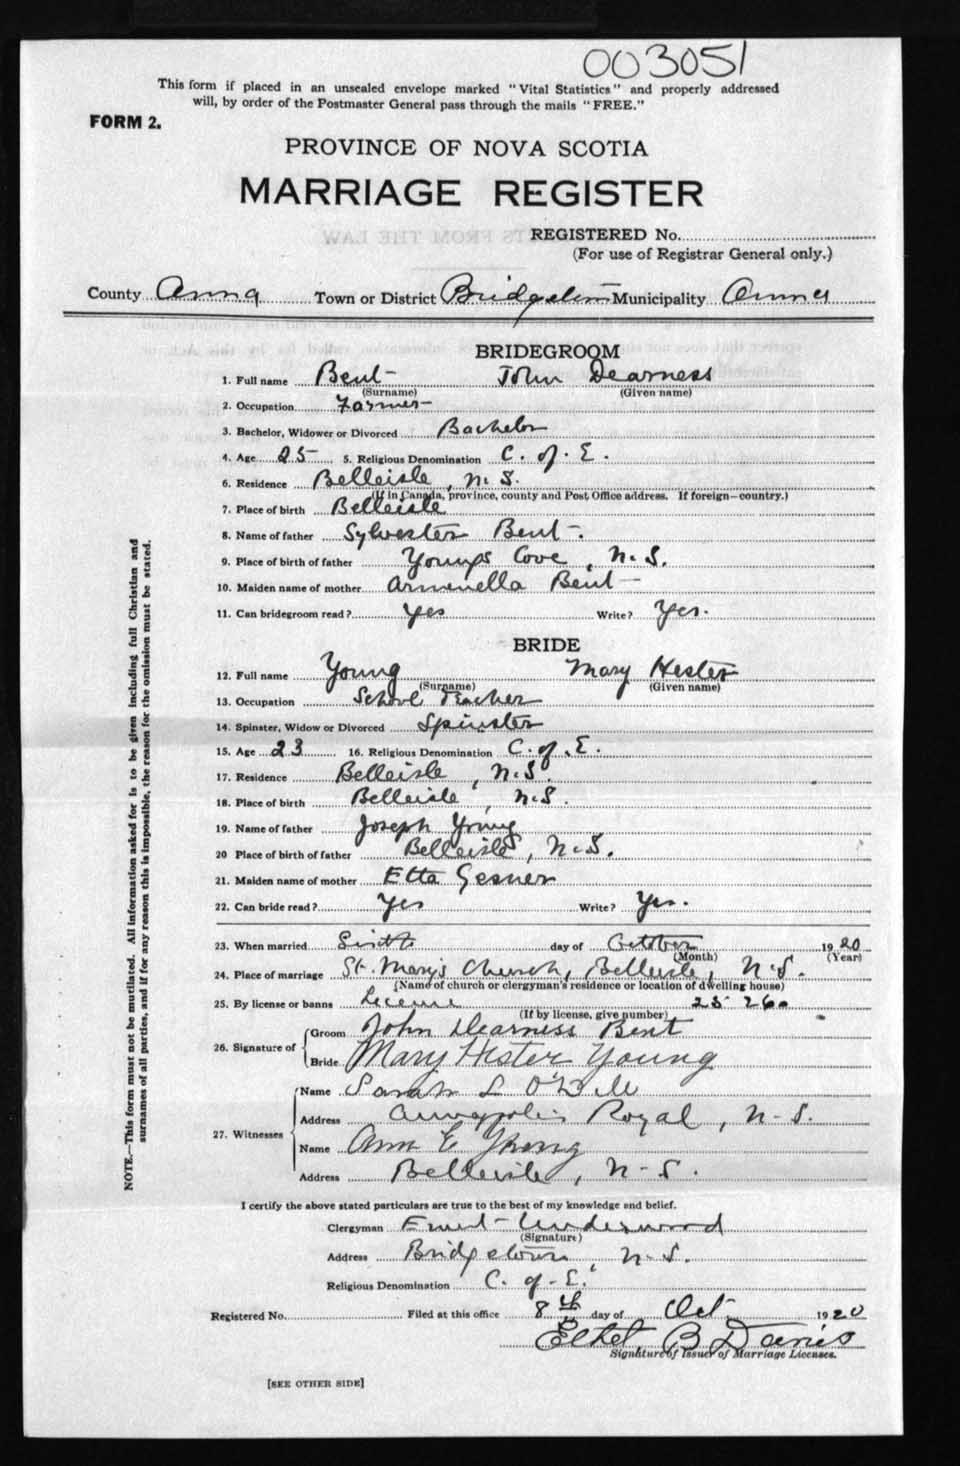 003051
This form if placed in an unsealed envelope marked "Vital Statistics" and properly addressed
will, by order of the Postmaster General pass through the mails "FREE."
FORM 2.
PROVINCE OF NOVA SCOTIA
MARRIAGE REGISTER
REGISTERED No.
(For use of Registrar General only.)
County Anna Town or District Bridgetown Municipality Anna
BRIDEGROOM
1. Full name Bent John Dearness
(Surname) (Given name)
2. Occupation Farmer
3. Bachelor, Widower or Divorced Bachelor
4. Age 25 5. Religious Denomination C. of. E.
6. Residence Belleisle, N. S.
(If in Canada, province, county and Post Office address. If foreign—country.)
7. Place of birth Belleisle
8. Name of father Sylvester Bent
9. Place of birth of father Youngs Cove, N. S.
10. Maiden name of mother Armenella Bent
11. Can bridegroom read? Yes Write? Yes.
BRIDE
12. Full name Young Mary Hester
(Surname) (Given name)
13. Occupation School Teacher
14. Spinster, Widow or Divorced Spinster
15. Age 23 16. Religious Denomination C. of. E.
17. Residence Belleisle, N.S.
18. Place of birth Belleisle, N.S.
19. Name of father Joseph Young
20 Place of birth of father Belleisle, N.S.
21. Maiden name of mother Etta Gesner
22. Can bride read? Yes Write? Yes.
23. When married Sixth day of October 1920
(Month) (Year)
24. Place of marriage St. Mary's Church, Belleisle, N.S.
(Name of church or clergyman's residence or location of dwelling house)
25. By license or banns License 25260
(If by license, give number)
26. Signature of Groom John Dearness Bent
Bride Mary Hester Young
27. Witnesses Name Sarah L O'Dell
Address Annapolis Royal, N-S.
Name Ann E Young
Address Belleisle, N-S.
I certify the above stated particulars are true to the best of my knowledge and belief.
Clergyman Ernest Underwood
(Signature)
Address Bridgetown N.S.
Religious Denomination C. of E.
Registered No. Filed at this office 8th day of Oct 1920
Ethel B Davies
Signature of Issuer of Marriage Licenses.
[SEE OTHER SIDE]
NOTE.—This form must not be mutilated. All information asked for is to be given including full Christian and
surnames of all parties, and if for any reason this is impossible, the reason for the omission must be stated.